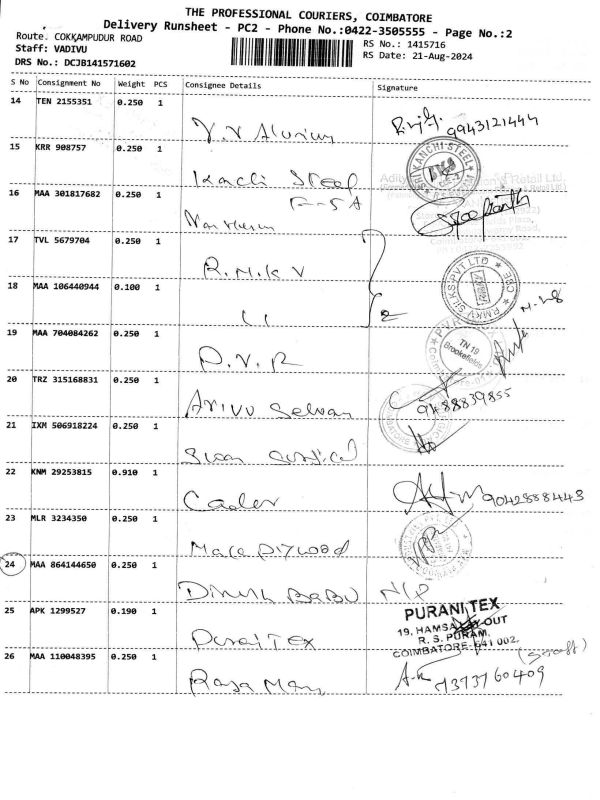 THE PROFESSIONAL COURIERS, COIMBATORE
Delivery Runsheet - PC2 - Phone No.:0422-3505555 - Page No.:2
Route. COKKAMPUDUR ROAD
Staff: VADIVU
DRS No.: DCJB141571602
RS No.: 1415716
RS Date: 21-Aug-2024
S No Consignment No Weight PCS Consignee Details Signature
14 TEN 2155351 0.250 1
9943121444
15 KRR 908757 0.250 1
Kachi Steel
KANCHI STEEL
16 MAA 301817682 0.250 1
17 TVL 5679704 0.250 1
R.M.K V
RMKV SILKS PVT LTD
CBE
18 MAA 106440944 0.100 1
11
2
19 MAA 704084262 0.250 1
P.V.R
TN 19
Brookefields
20 TRZ 315168831 0.250 1
Arivu Selvan
9488839855
21 IXM 506918224 0.250 1
Swan Surgical
22 KNM 29253815 0.910 1
9042888443
23 MLR 3234350 0.250 1
24 MAA 864144650 0.250 1
Dinesh Babu
25 APK 1299527 0.190 1
Purani Tex
PURANI TEX
19, HAMSA LAY OUT
R. S. PURAM,
COIMBATORE-641 002.
(Staff)
26 MAA 110048395 0.250 1
Raja Man
7373760409